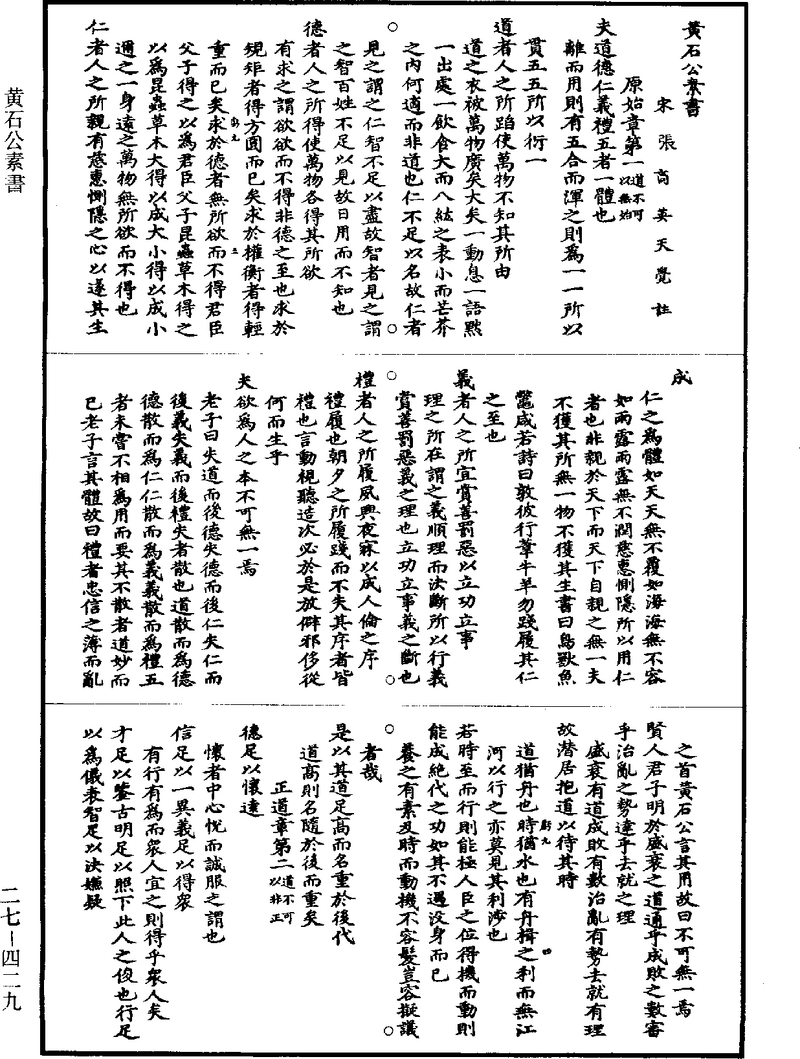 黄石公素書
宋張商英天覺註
原始章第一道不可以無始
夫道德仁義禮五者一體也
離而用則有五合而渾之則爲一一所以
貫五五所以衍一
道者人之所蹈使萬物不知其所由
道之衣被萬物廣矣大矣一動息一語默
一出處一飲食大而八紘之表小而芒芥
之内何適而非道也仁不足以名故仁者
見之謂之仁智不足以盡故智者見之謂
之智百姓不足以見故日用而不知也
德者人之所得使萬物各得其所欲
有求之謂欲欲而不得非德之至也求於
規矩者得方圓而已矣求於權衡者得輕
重而已矣求於德者無所欲而不得君臣
父子得之以爲君臣父子昆蟲草木得之
以爲昆蟲草木大得以成大小得以成小
邇之一身遠之萬物無所欲而不得也
仁者人之所親有慈惠惻隱之心以遂其生
成
仁之爲體如天天無不覆如海海無不容
如雨露雨露無不潤慈惠惻隱所以用仁
者也非親於天下而天下自親之無一夫
不獲其所無一物不獲其生書曰鳥獸魚
鼈咸若詩曰敦彼行葦牛羊勿踐履其仁
之至也
義者人之所宜賞善罰惡以立功立事
理之所在謂之義順理而決斷所以行義
賞善罰惡義之理也立功立事義之斷也
禮者人之所履夙興夜寐以成人倫之序
禮履也朝夕之所履踐而不失其序者皆
禮也言動視聽造次必於是放僻邪侈從
何而生乎
夫欲爲人之本不可無一焉
老子曰失道而後德失德而後仁失仁而
後義失義而後禮失者散也道散而爲德
德散而爲仁仁散而爲義義散而爲禮五
者未嘗不相爲用而要其不散者道妙而
已老子言其體故曰禮者忠信之薄而亂
之首黄石公言其用故曰不可無一焉
賢人君子明於盛衰之道通乎成敗之數審
乎治亂之勢達乎去就之理
盛衰有道成敗有數治亂有勢去就有理
故潜居抱道以待其時
道猶舟也時猶水也有舟楫之利而無江
河以行之亦莫見其利涉也
若時至而行則能極人臣之位得機而動則
能成絶代之功如其不遇没身而已
養之有素及時而動機不容髮豈容擬議
者哉
是以其道足高而名重於後代
道高則名隨於後而重矣
正道章第二道不可以非正
德足以懷遠
懷者中心悦而誠服之謂也
信足以一異義足以得衆
有行有爲而衆人宜之則得乎衆人矣
才足以鑒古明足以照下此人之俊也行足
以爲儀表智足以決嫌疑
黄石公素書
二七—四二九